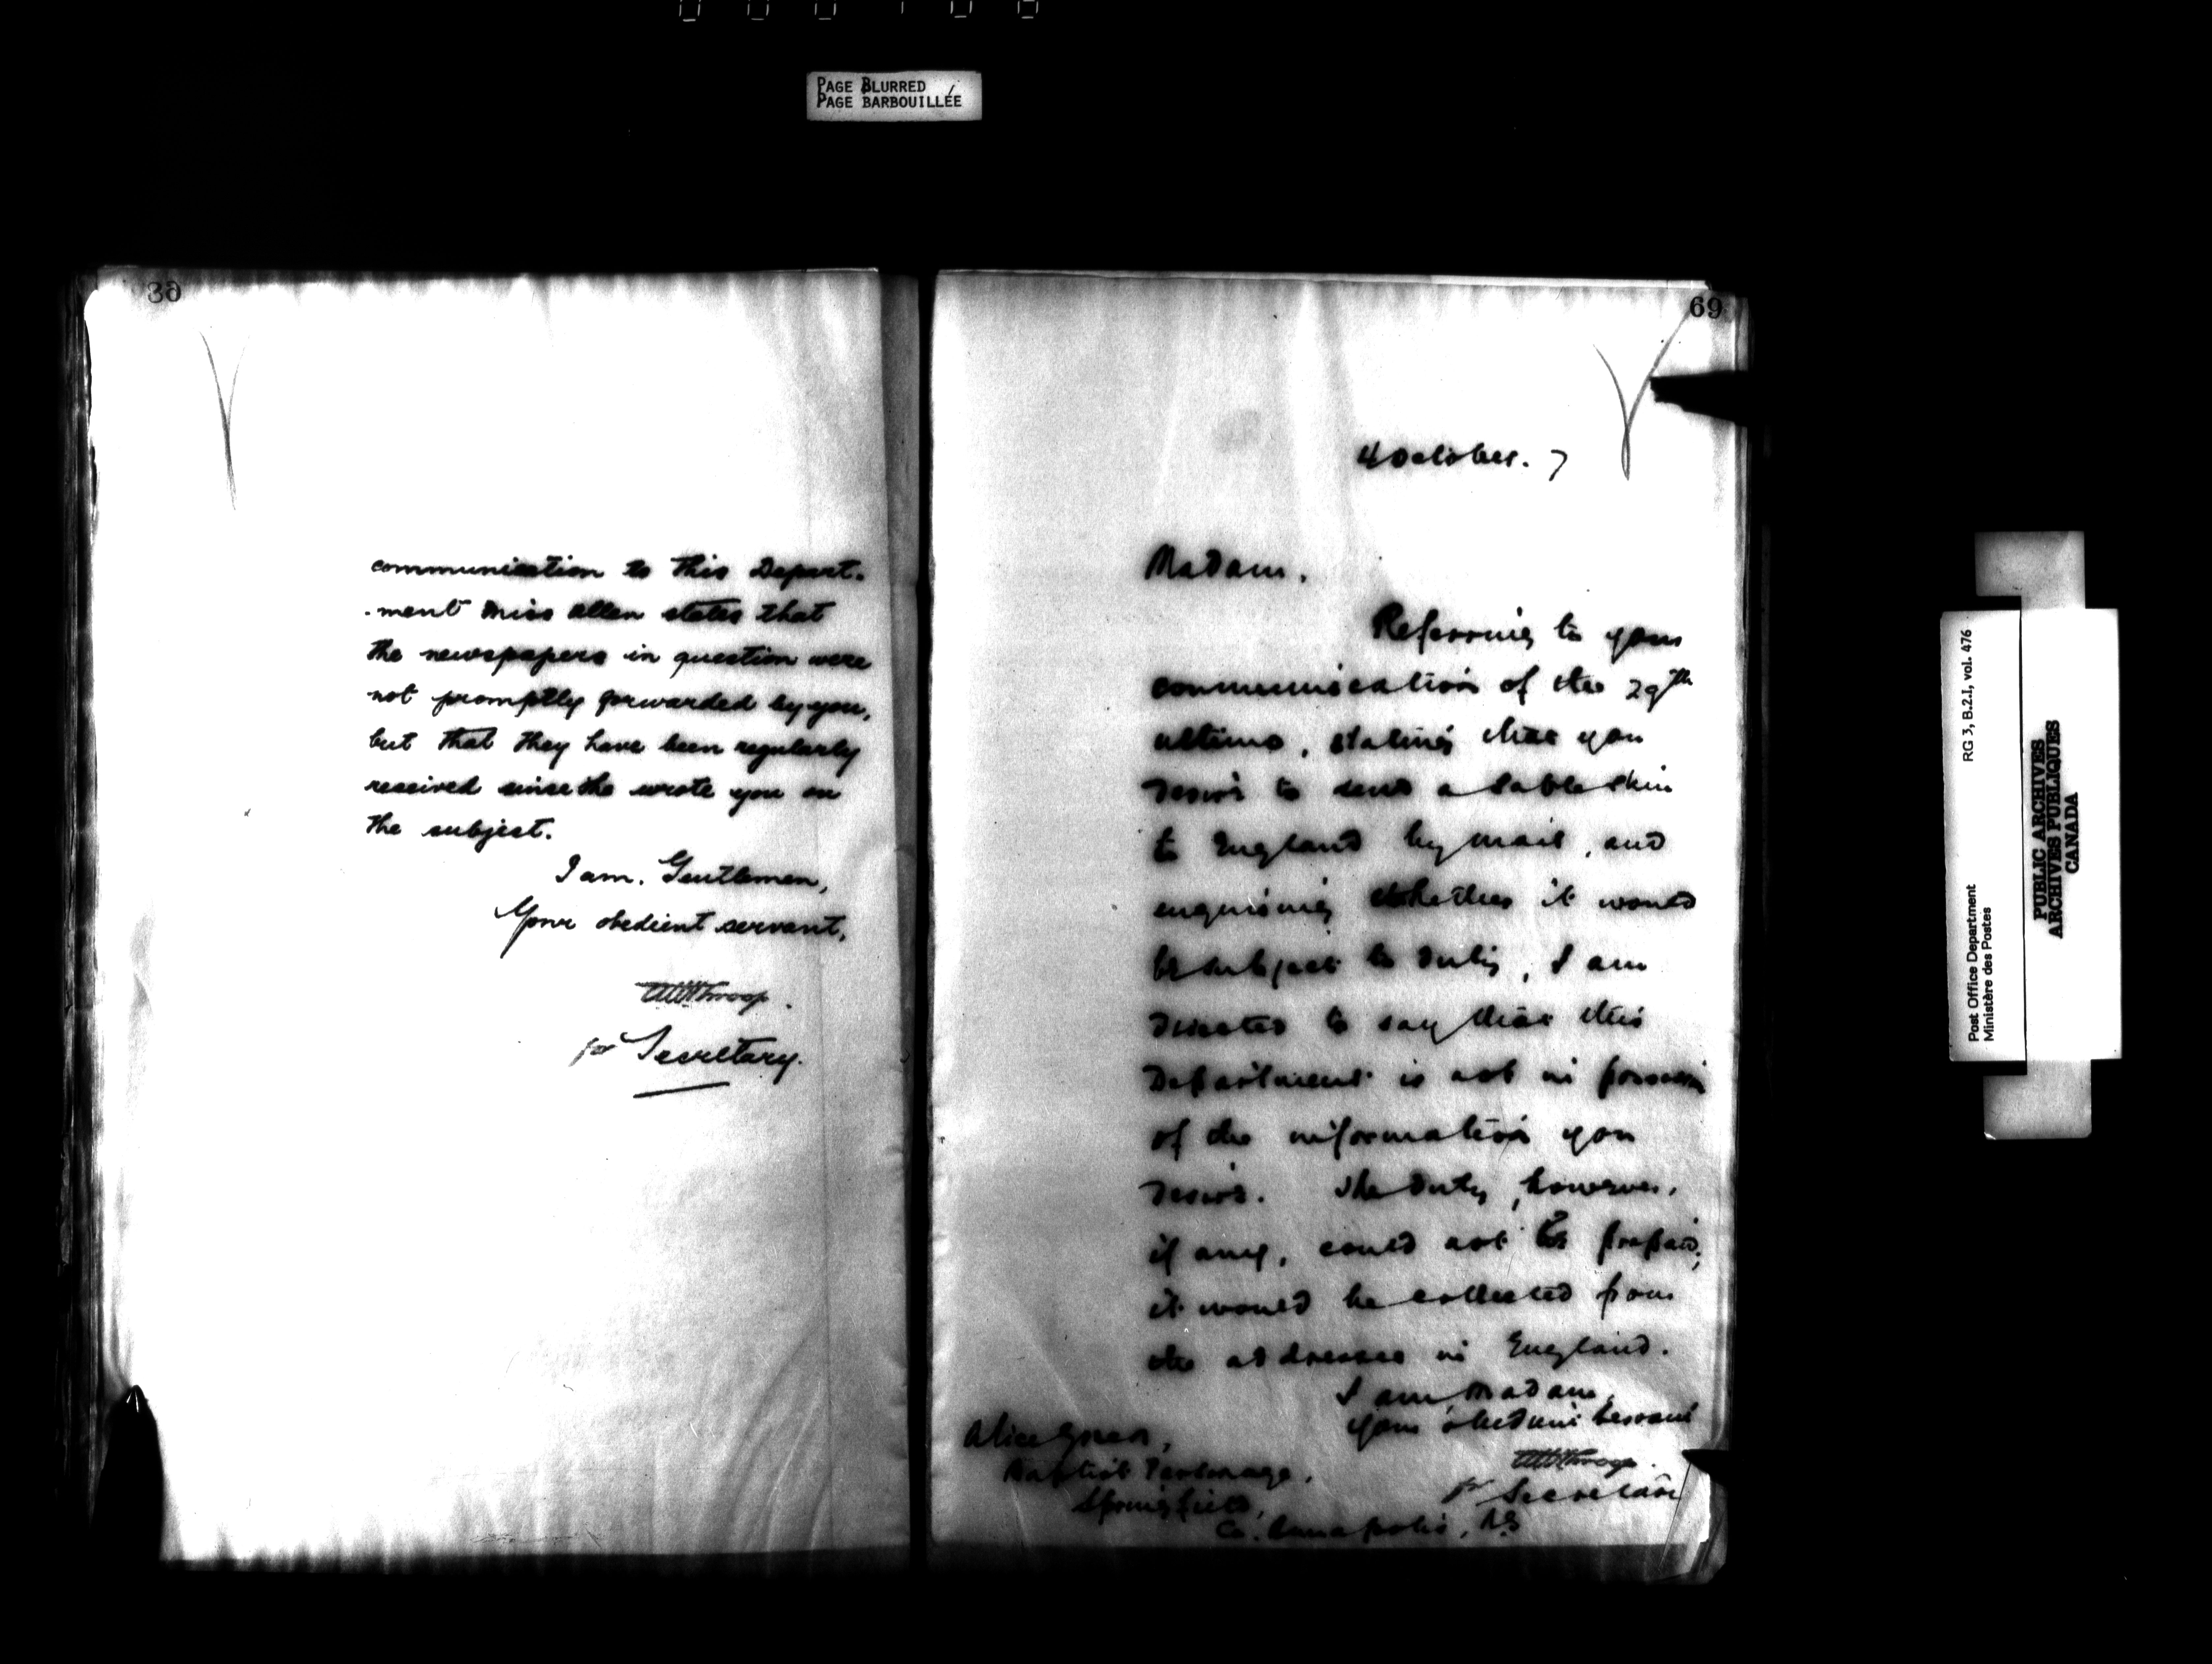 PAGE BLURRED
PAGE BARBOUILLÉE
communication to this Depart-
-ment Miss Allen states that
the newspapers in question were
not promptly forwarded by you,
but that they have been regularly
received since she wrote you on
the subject.
I am. Gentlemen,
Your obedient servant,
for Secretary.
69
4 October. 7
Madam,
Referring to your
communication of the 29th
ultimo, stating that you
desire to send a sable skin
to England by mail, and
enquiring whether it would
be subject to duty, I am
directed to say that this
Department is not in possession
of the information you
desire. The duty, however,
if any, could not be prepaid;
it would be collected from
the addressee in England.
I am, Madam,
Your obedient servant
for Secretary
Alice
Baptist Parsonage,
Springfield,
Co. Annapolis, N.S
Post Office Department RG 3, B.2.I, vol. 476
Ministère des Postes
PUBLIC ARCHIVES
ARCHIVES PUBLIQUES
CANADA